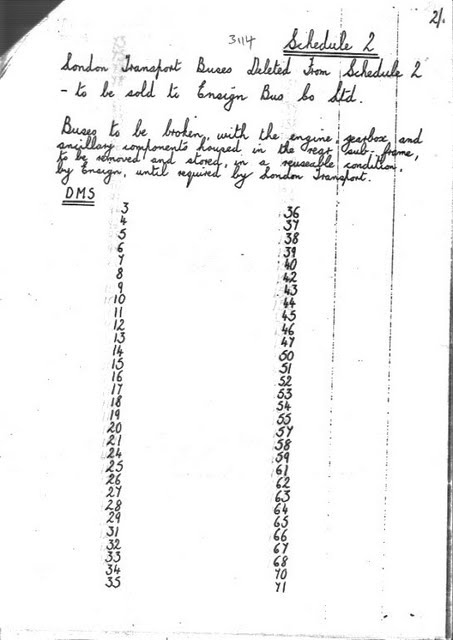 2/.
3114
Schedule 2
London Transport Buses Deleted From Schedule 2
- to be sold to Ensign Bus Co Ltd.
Buses to be broken, with the engine, gearbox and
ancillary components housed in the rear sub-frame,
to be removed and stored, in a reuseable condition,
by Ensign, until required by London Transport.
DMS
3
4
5
6
7
8
9
10
11
12
13
14
15
16
17
18
19
20
21
24
25
26
27
28
29
31
32
33
34
35
36
37
38
39
40
42
43
44
45
46
47
50
51
52
53
54
55
57
58
59
61
62
63
64
65
66
67
68
70
71